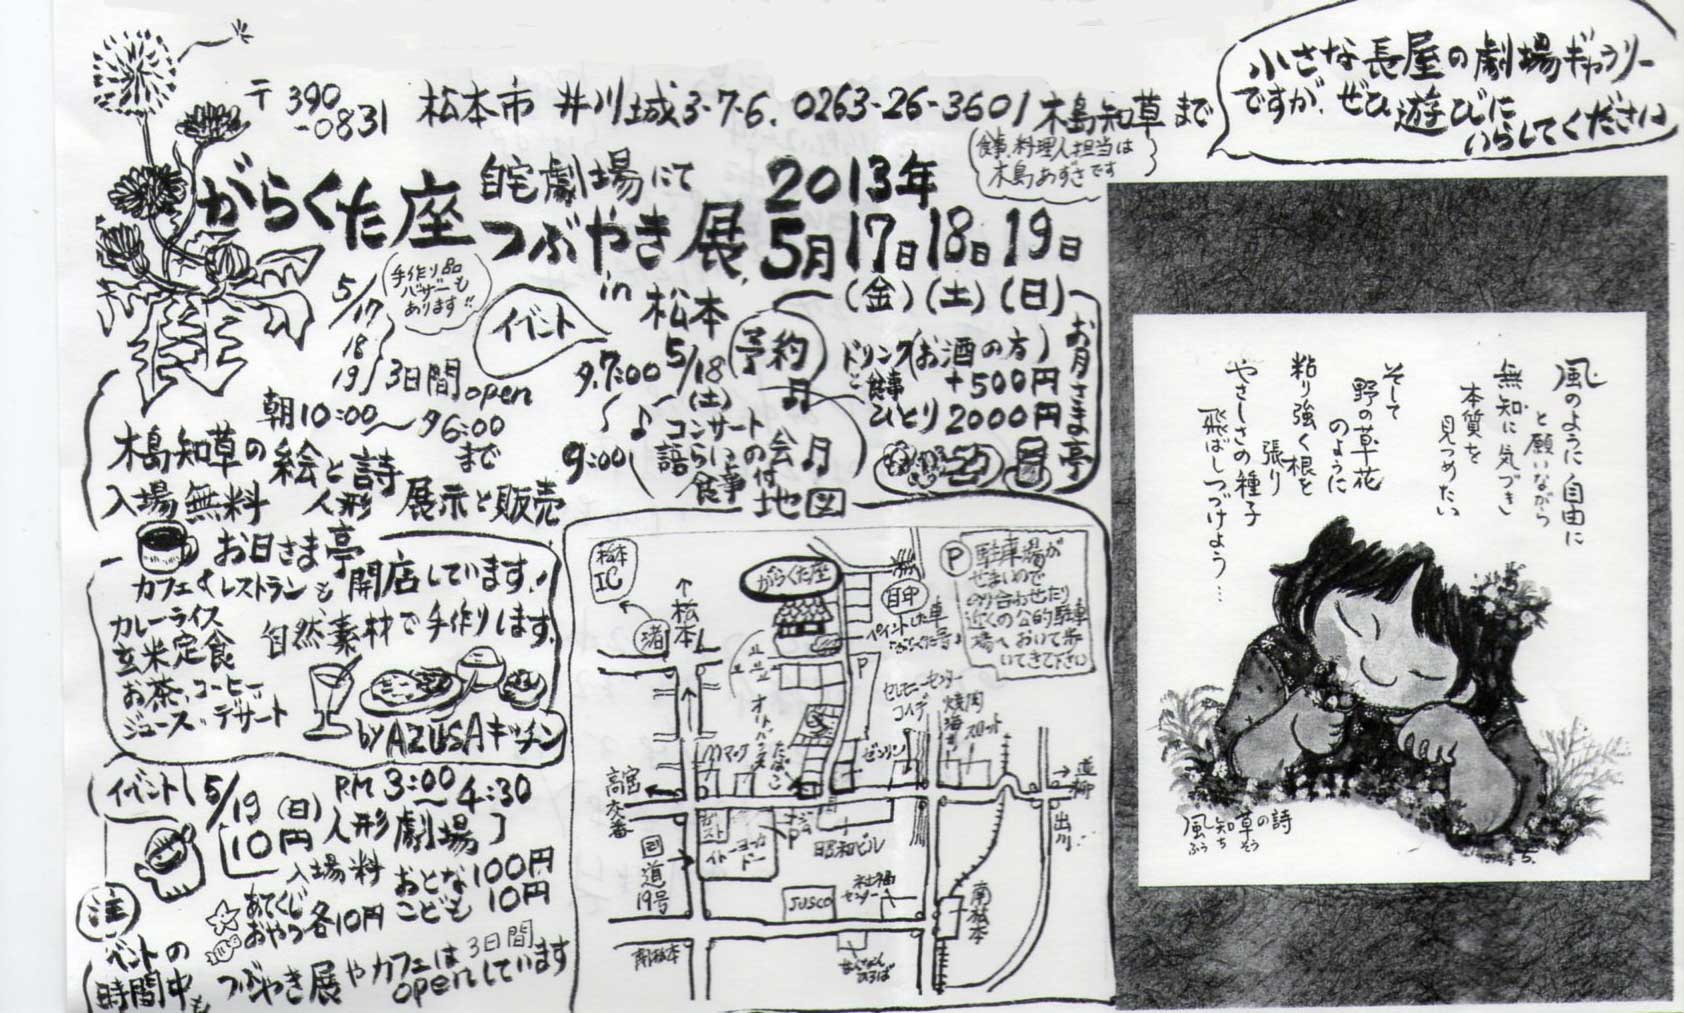 〒390-0831
松本市 井川城3-7-6. 0263-26-3601 木島知草まで
食事、料理人担当は
木島あずさです
小さな長屋の劇場ギャラリー
ですが、ぜひ遊びに
いらしてください
がらくた座 自宅劇場にて
つぶやき展 in 松本
2013年
5月17日18日19日
(金)(土)(日)
手作り品
バザーも
あります!!
5/17
18
19
3日間open
朝10:00〜夕6:00
まで
木島知草の絵と詩
人形 展示と販売
入場無料
イベント
夕7:00
〜
9:00
5/18
(土)
コンサート
語らいの会
食事付
予約
お月さま亭
ドリンク(お酒の方)
と +500円
食事
ひとり2000円
お日さま亭
カフェ&レストランも開店しています!
カレーライス
玄米定食
お茶、コーヒー
ジュース、デザート
自然素材で手作りします。
by AZUSAキッチン
イベント
5/19(日) PM 3:00〜4:30
10円人形劇場
入場料 おとな100円
こども10円
あてくじ
おやつ 各10円
注
イベントの
時間中も
つぶやき展やカフェは3日間
openしています
地図
松本
IC
渚
松本
がらくた座
目印
ペイントした車
P
駐車場が
せまいので
のり合わせたり
近くの公的駐車
場へおいて歩
いてきて下さい
P
オートバックス
たばこ
セレモニーセンター
コイデ
焼海
スロット
マック
ゼンリン
高宮
交番
国道
19号
ガスト
イトーヨーカドー
P
昭和ビル
JUSCO
社福
センター
南松本
南松本
なんなん
ひろば
並柳
出川
風のように自由に
と願いながら
無知に気づき
本質を
見つめたい
そして
野の草花
のように
粘り強く根を
張り
やさしさの種子
飛ばしつづけよう…
風知草の詩
ふうちそう
1994.春 5.